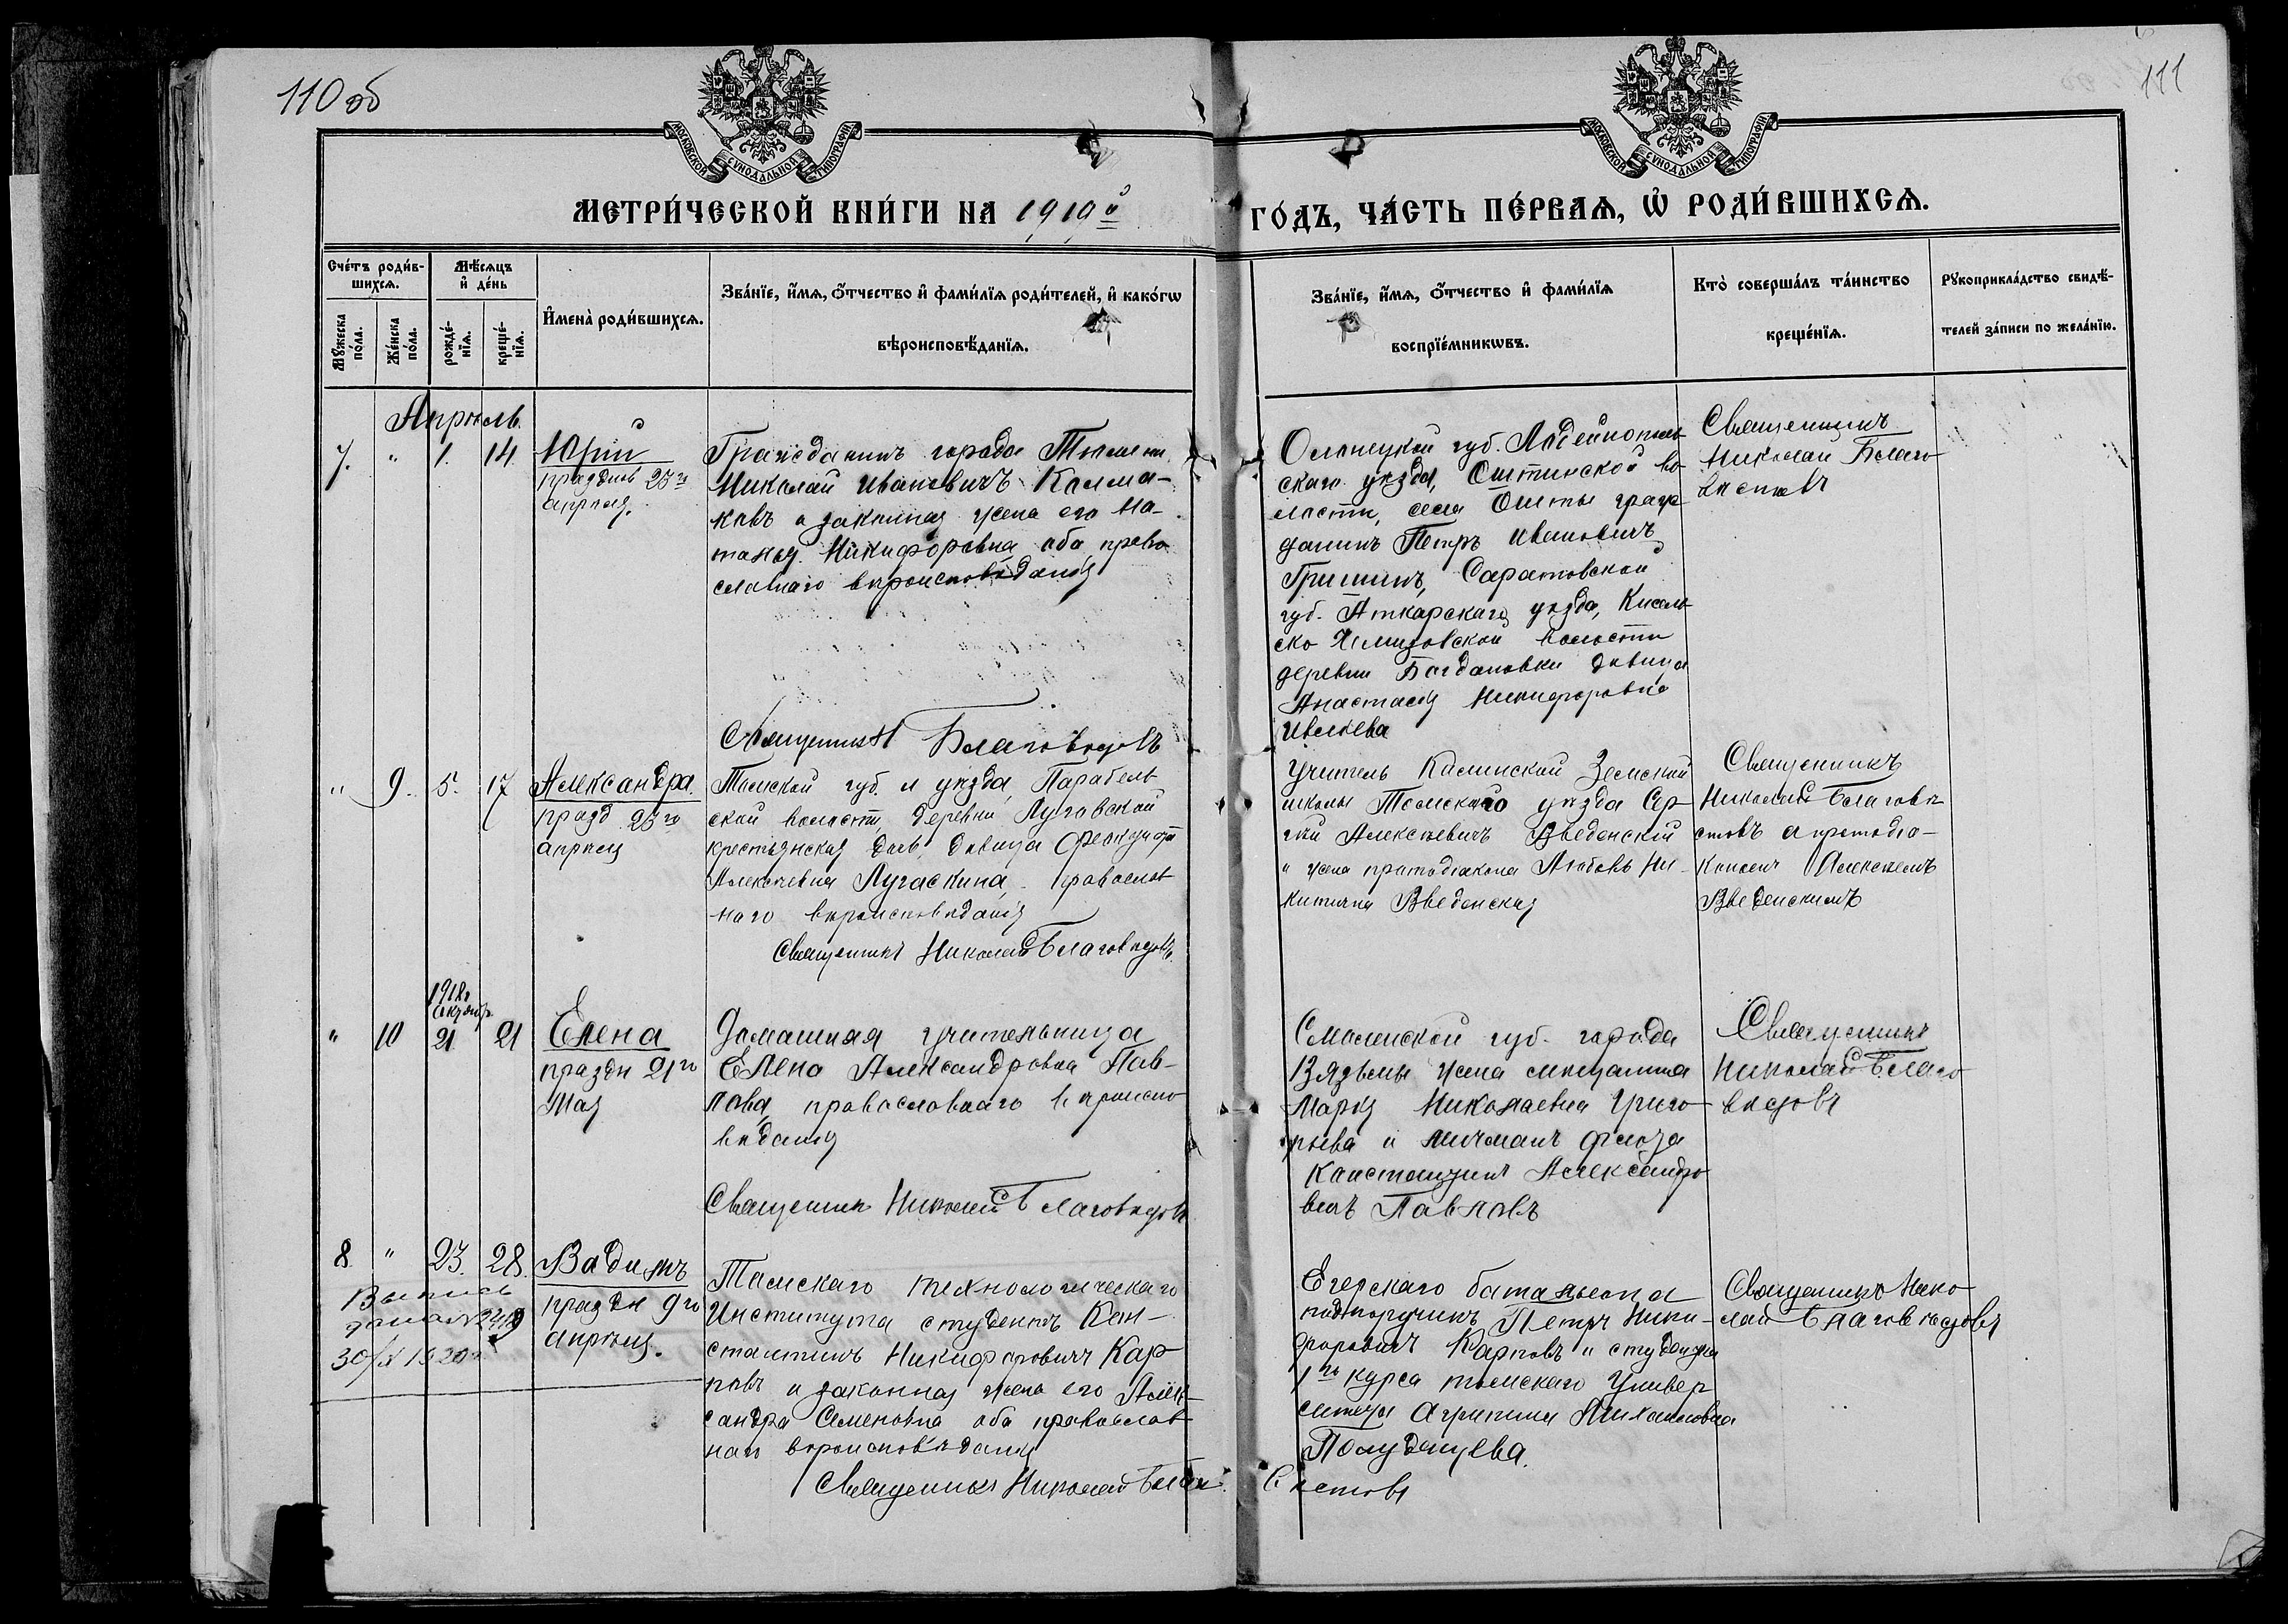 110 об
111
МОСКОВСКОЙ СѴНОДАЛЬНОЙ ТИПОГРАФІИ
МОСКОВСКОЙ СѴНОДАЛЬНОЙ ТИПОГРАФІИ
МЕТРИ́ЧЕСКОЙ КНИ́ГИ НА 1919й ГО́ДЪ, ЧА́СТЬ ПЕ́РВАѦ, Ѡ҆ РОДИ́ВШИХСѦ.
Сче́тъ роди́в-
шихсѧ.
Мꙋ́жеска
по́ла.
Же́нска
по́ла.
Мѣ́сѧцъ
и҆ де́нь
рожде́-
нїѧ.
креще́-
нїѧ.
И҆мена̀ роди́вшихсѧ.
Зва́нїе, и҆́мѧ, ѻ҆́тчество и҆ фами́лїѧ роди́телей, и҆ како́гѡ
вѣроисповѣ́данїѧ.
Зва́нїе, и҆́мѧ, ѻ҆́тчество и҆ фами́лїѧ
воспрїе́мникѡвъ.
Кто̀ соверша́лъ та́инство
креще́нїѧ.
Рꙋкоприкла́дство свидѣ́-
телей за́писи по жела́нїю.
Апрѣль.
7. " 1. 14.
Юрій
праздн 23го
апрѣля.
Гражданинъ города Тюмени
Николай Ивановичъ Калма-
ковъ и законная жена его На-
талья Никифоровна оба право
славнаго вѣроисповѣданія
Священникъ Благовѣстовъ
Олонецкой губ. Лодейнополь
скаго уѣзда, Оштинской во
лости, села Ошты граж
данинъ Петръ Ивановичъ
Гришинъ, Саратовской
губ. Аткарскаго уѣзда, Кисель
ско Чемизовской волости
деревни Богдановки дѣвица
Анастасія Никифоровна
Ивлiева
Священникъ
Николай Благо
вѣстовъ
" 9. 5. 17
Александра.
празд 23го
апрѣля
Томской губ. и уѣзда, Парабель
ской волости, деревни Луговской
крестьянская дочь, дѣвица
Алексѣевна Лугаскина, православ
наго вѣроисповѣданія
Священникъ Николай Благовѣстовъ.
Учитель Каминской Земской
школы Томскаго уѣзда Сер
гѣй Алексѣевичъ Введенскій
и жена протодіакона Любовь Ни-
китична Введенская
Священникъ
Николай Благовѣ
стовъ с протодіа-
кономъ Алексѣемъ
Введенскимъ
1918г
" 10 21 21
Елена
праздн 21го
Мая
Домашняя учительница
Елена Александровна Пав-
лова, православнаго вѣроиспо
вѣданія
Священник Николай Благовѣстовъ
Смоленской губ. города
Вязьмы жена мѣщанина
Марія Николаевна Григо
рьева и мичманъ флота
Константинъ Александро
вичъ Павловъ
Священникъ
Николай Благо
вѣстовъ
8 " 23. 28.
Выпись
дана
30/ 1920г
Вадимъ
праздн 9го
апрѣля.
Томскаго технологическаго
Института студентъ Кон-
стантинъ Никифоровичъ Кар
повъ и законная жена его Алек
сандра Семеновна оба православ
наго вѣроисповѣданія
Священникъ Николай Благо
вѣстовъ
Егерскаго баталіона
подпоручикъ Петръ Ники-
форовичъ Карповъ и студентка
1го курса томскаго Универ
ситета Агрипина Михаиловна
Полуденцева.
Священникъ Нико
лай Благовѣстовъ